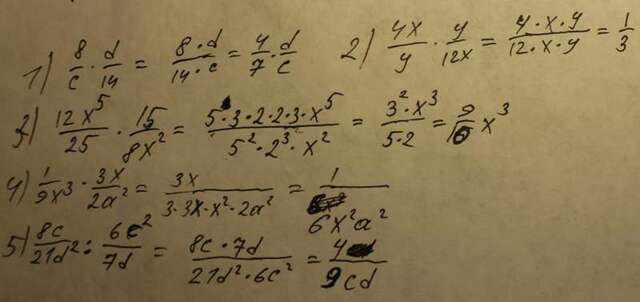 1) 8/c · d/14 = 8·d/14·c = 4/7 · d/c 2) 4x/y · y/12x = 4·x·y/12·x·y = 1/3
3) 12x⁵/25 · 15/8x² = 5·3·2·2·3·x⁵/5²·2³·x² = 3²·x³/5·2 = 9/10 x³
4) 1/9x³ · 3x/2a² = 3x/3·3x·x²·2a² = 1/6x²a²
5) 8c/21d² : 6c²/7d = 8c·7d/21d²·6c² = 4/9cd